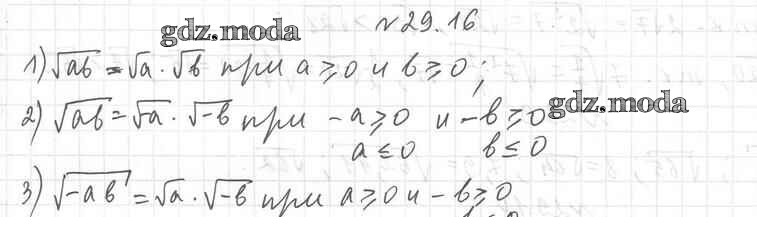 gdz.moda № 29.16
1) √ab = √a · √b при a ⩾ 0 и b ⩾ 0;
2) √ab = √-a · √-b при - a ⩾ 0 и - b ⩾ 0
gdz.moda
a ≤ 0 b ≤ 0
3) √-ab = √a · √-b при a ⩾ 0 и - b ⩾ 0